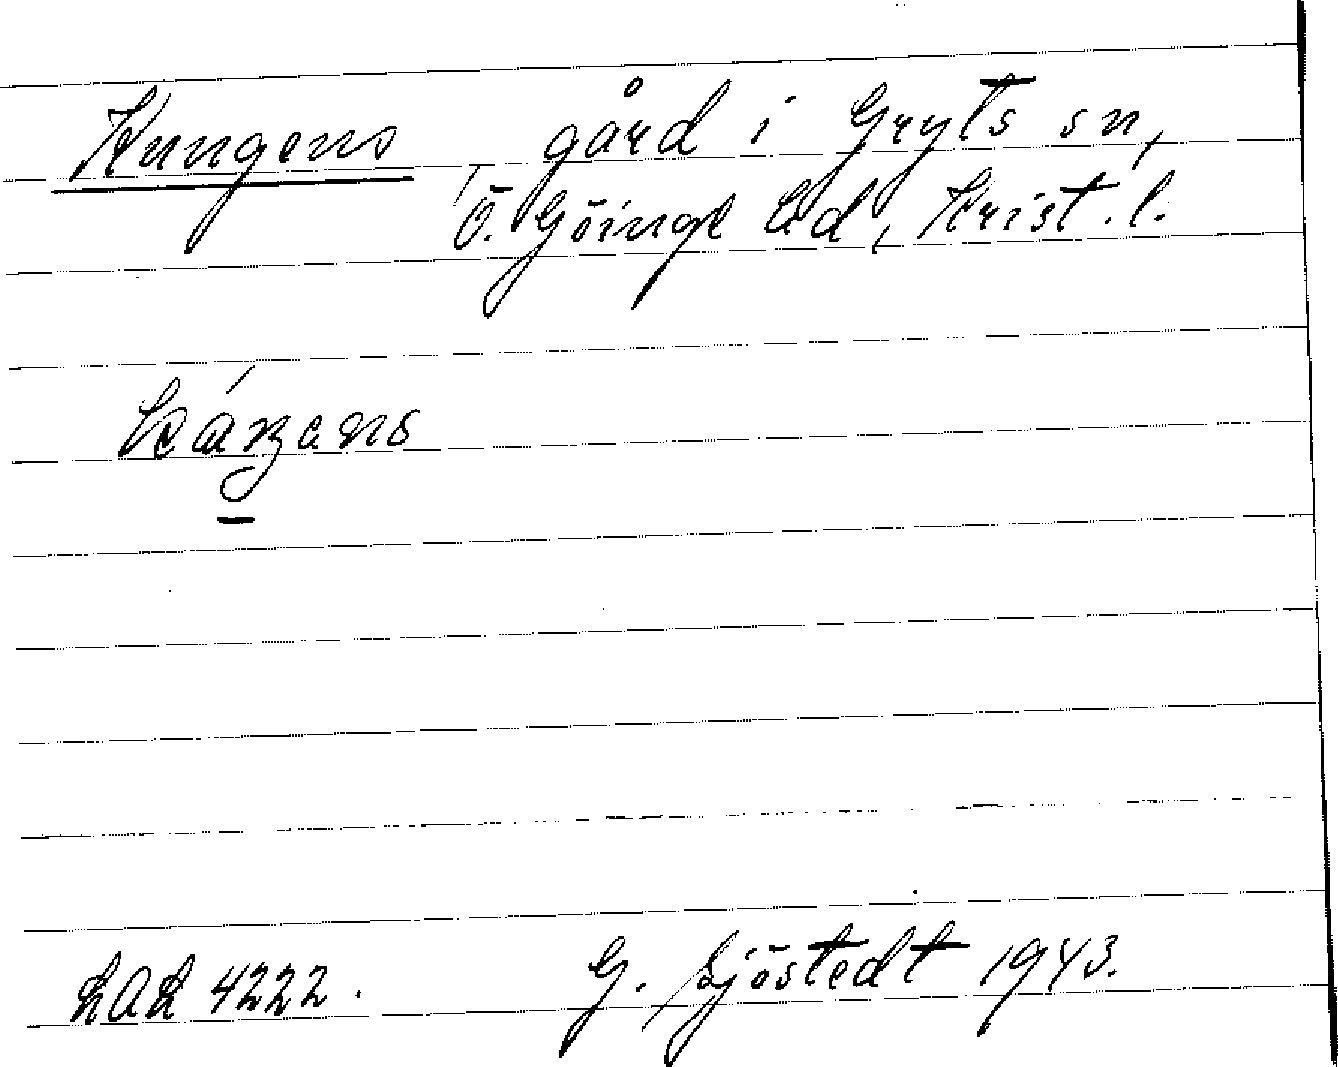 Kungens, gård i Gryts sn,
Ö. Göinge hd, Krist. l.
LAL 4222. G. Sjöstedt 1943.